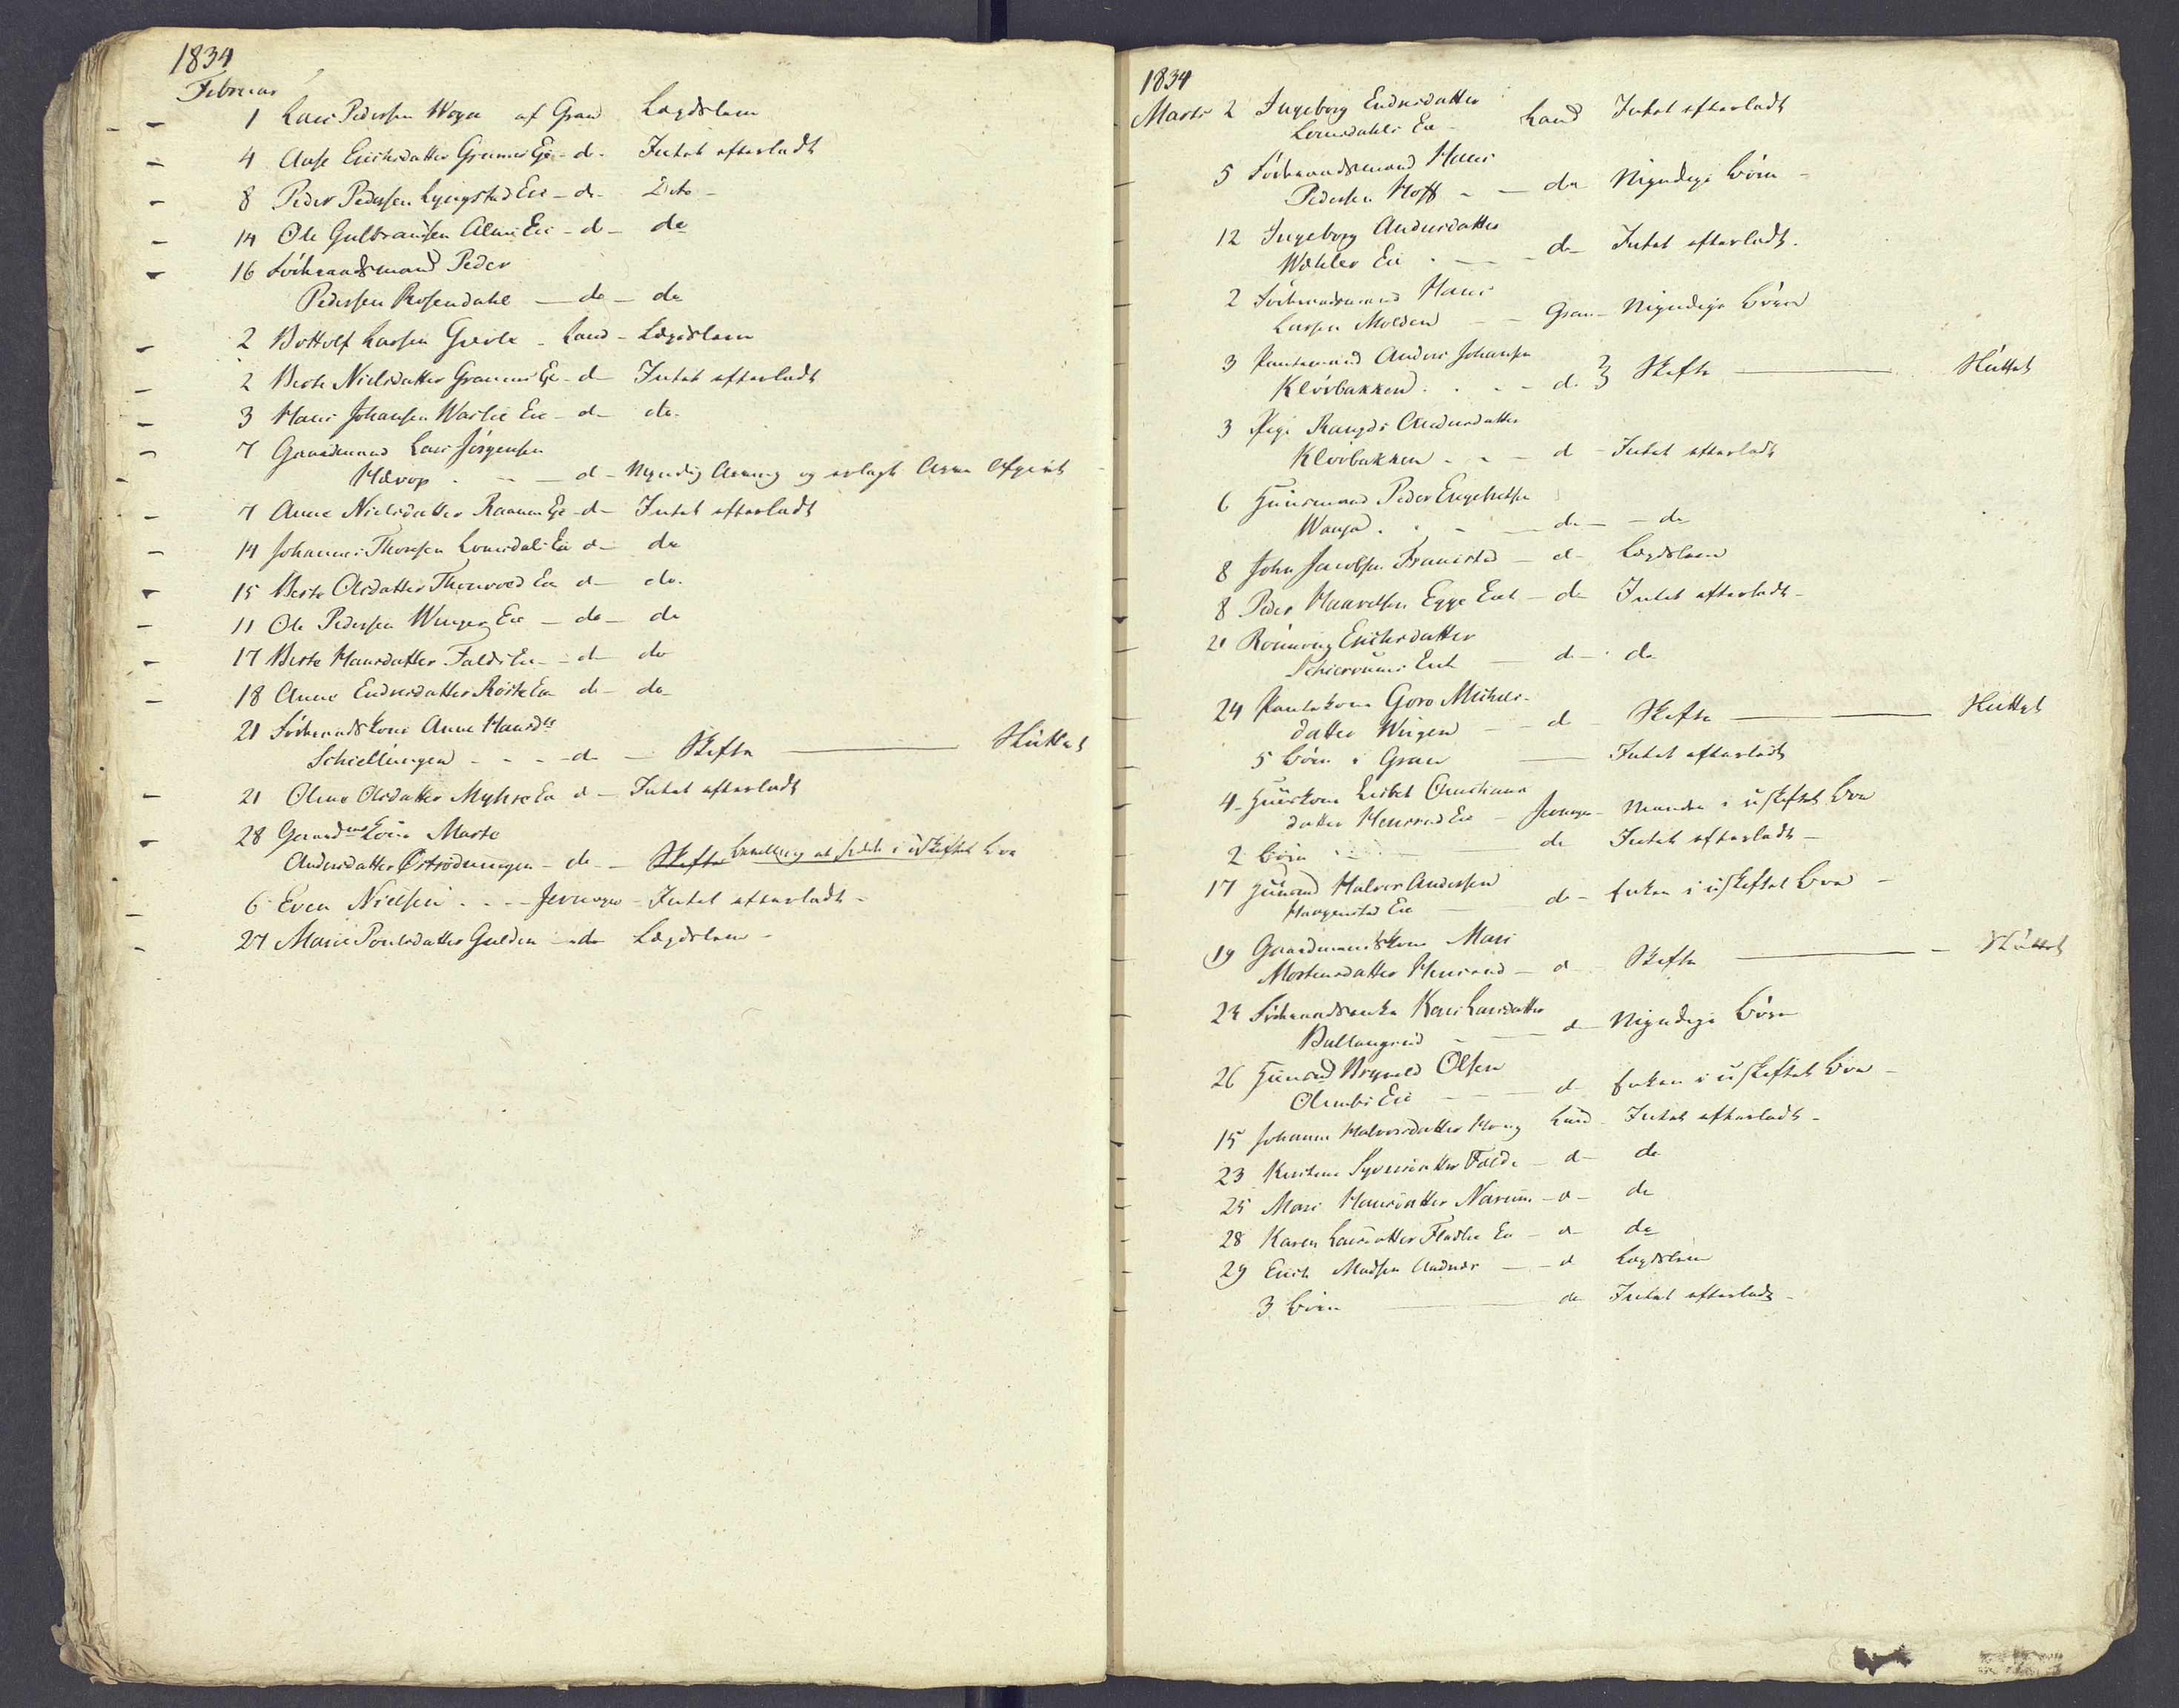 1834
Februar
1 Lars Pedersen Woyen af Gran Lægdslem
4 Aase Erichsdatter Grinna Eie - do - Intet efterladt
8 Peder Pedersen Lyngstad Eie - do - Dito -
14 Ole Gulbrandsen Alm Eie - do - do
16 Føderaadsmand Peder
Pedersen Rosendahl - do - do
2 Bottolf Larsen - Land - Lægdslem
2 Berte Nielsdatter Eie - do - Intet efterladt
3 Hans Johansen Warlie Eie - do - do -
7 Gaardmand Lars Jørgensen
- do - Myndig Arving og erlagt Arve Afgivt
7 Anne Nielsdatter Eie - do - Intet efterladt
14 Johannes Thoresen Lomsdals Eie do - do
15 Berte Olsdatter Eie do - do.
11 Ole Pedersen Winger Eie - do - do
17 Berte Hansdatter Falds Eie - do - do
18 Anne Endresdatter Røste Eie do - do
21 Føderaadskone Anne Hansdtr
Schiellingen - - - do - Skifte Sluttet
21 Oline Olsdatter Myhre Eie do - Intet efterladt
28 Gaardmdskone Marte
Andersdatter Østrødningen - do - Skifte Bevilling at sidde i uskiftet Boe
6 Even Nielsen - - - Jevnager - Intet efterladt -
27 Marie Poulsdatter Gulden - do Lægdslem -
1834
Marts 2 Ingeborg Endresdatter
Lomsdahls Eie - Land Intet efterladt
5 Føderaadsmand Hans
Pedersen Hoff - - do Myndige Børn -
12 Ingeborg Andersdatter
Wæhler Eie - - do - Intet efterladt.
2 Føderaadsmand Hans
Larsen Molden - - Gran - Myndige Børn
3 Pantemand Anders Johansen
Kløvbakken . . - - do. } Skifte Sluttet
3 Pige Rangdi Andersdatter
Kløvbakken - - - do - Intet efterladt
6 Huusmand Peder Engebretsen
Wanga . . - - do - - do
8 John Jacobsen - do - Lægdslem
8 Peder Haavelsen Egge Eiet - do Intet efterladt -
21 Rønnoug Erichsdatter
Schiervums Eiet - do - do
24 Pantekone Goro Michels-
datter Wingen - - do - Skifte Sluttet
5 Børn i Gran Intet efterladt
4 - Huuskone Lisbet Christians
datter Eie - Jevnager - Manden i uskiftet Boe
2 Børn do Intet efterladt -
17 Huusmd Halvor Andersen
Haagenstad Eie do - Enken i uskiftet Boe -
19 Gaardmandskone Mari
Mortensdatter - do - Skifte Sluttet
24 Føderaadsenke Kari Larsdatter
Ballangrud - - do - Myndige Børn
26 Huusmd Brynild Olsen
Olimbs Eie - - - do Enken i uskiftet Boe -
15 Johanne Halvorsdatter Houg Land - Intet efterladt -
23 Kirstine Syversdatter Falde - do - do
25 Mari Hansdatter Narum - do - do
28 Karen Larsdatter Fladlie Eie - do - do
29 Erich Madsen - - do Lægdslem
3 Børn do Intet efterladt -